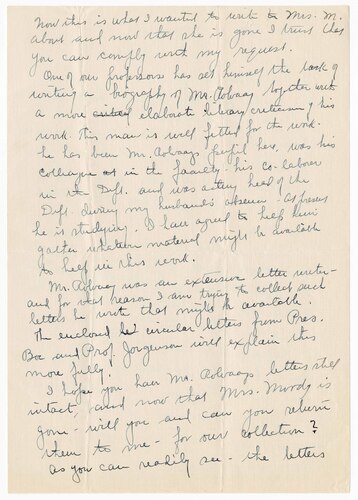 Now this is what I wanted to write to Mrs. M.
about and now that she is gone I trust that
you can comply with my request.
One of our professors has set himself the task of
writing a biography of Mr. Rolvaag together with
a more elaborate literary criticism of his
work. This man is well fitted for the work.
he has been Mr. Rolvaags pupil here, was his
colleague as in the faculty - his co-laborer
in the Dept. and was acting head of the
Dept. during my husband's absence. At present
he is studying. I have agreed to help him
gather whatever material might be available
to help in this work.
Mr. Rolvaag was an extensive letter writer -
and for that reason I am trying to collect such
letters he wrote that might be available.
The enclosed circular letters from Pres.
Boe and Prof. Jorgenson will explain this
more fully.
I hope you have Mr. Rolvaags letters still
intact, and now that Mrs. Moody is
gone - will you and can you return
them to me - for our collection?
As you can readily see - the letters